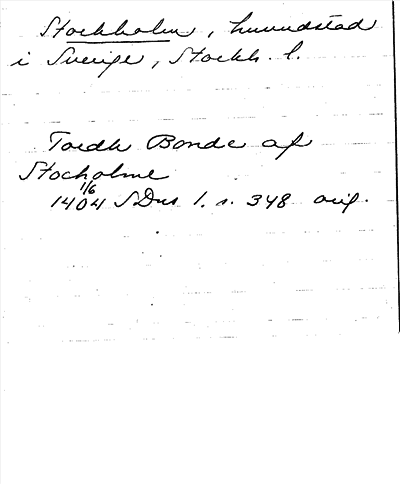 Stockholm, huvudstad
i Sverige, Stockh. l.
Tordh Bonde af
Stocholme
1/6
1404 SDns 1. s. 348 orig.